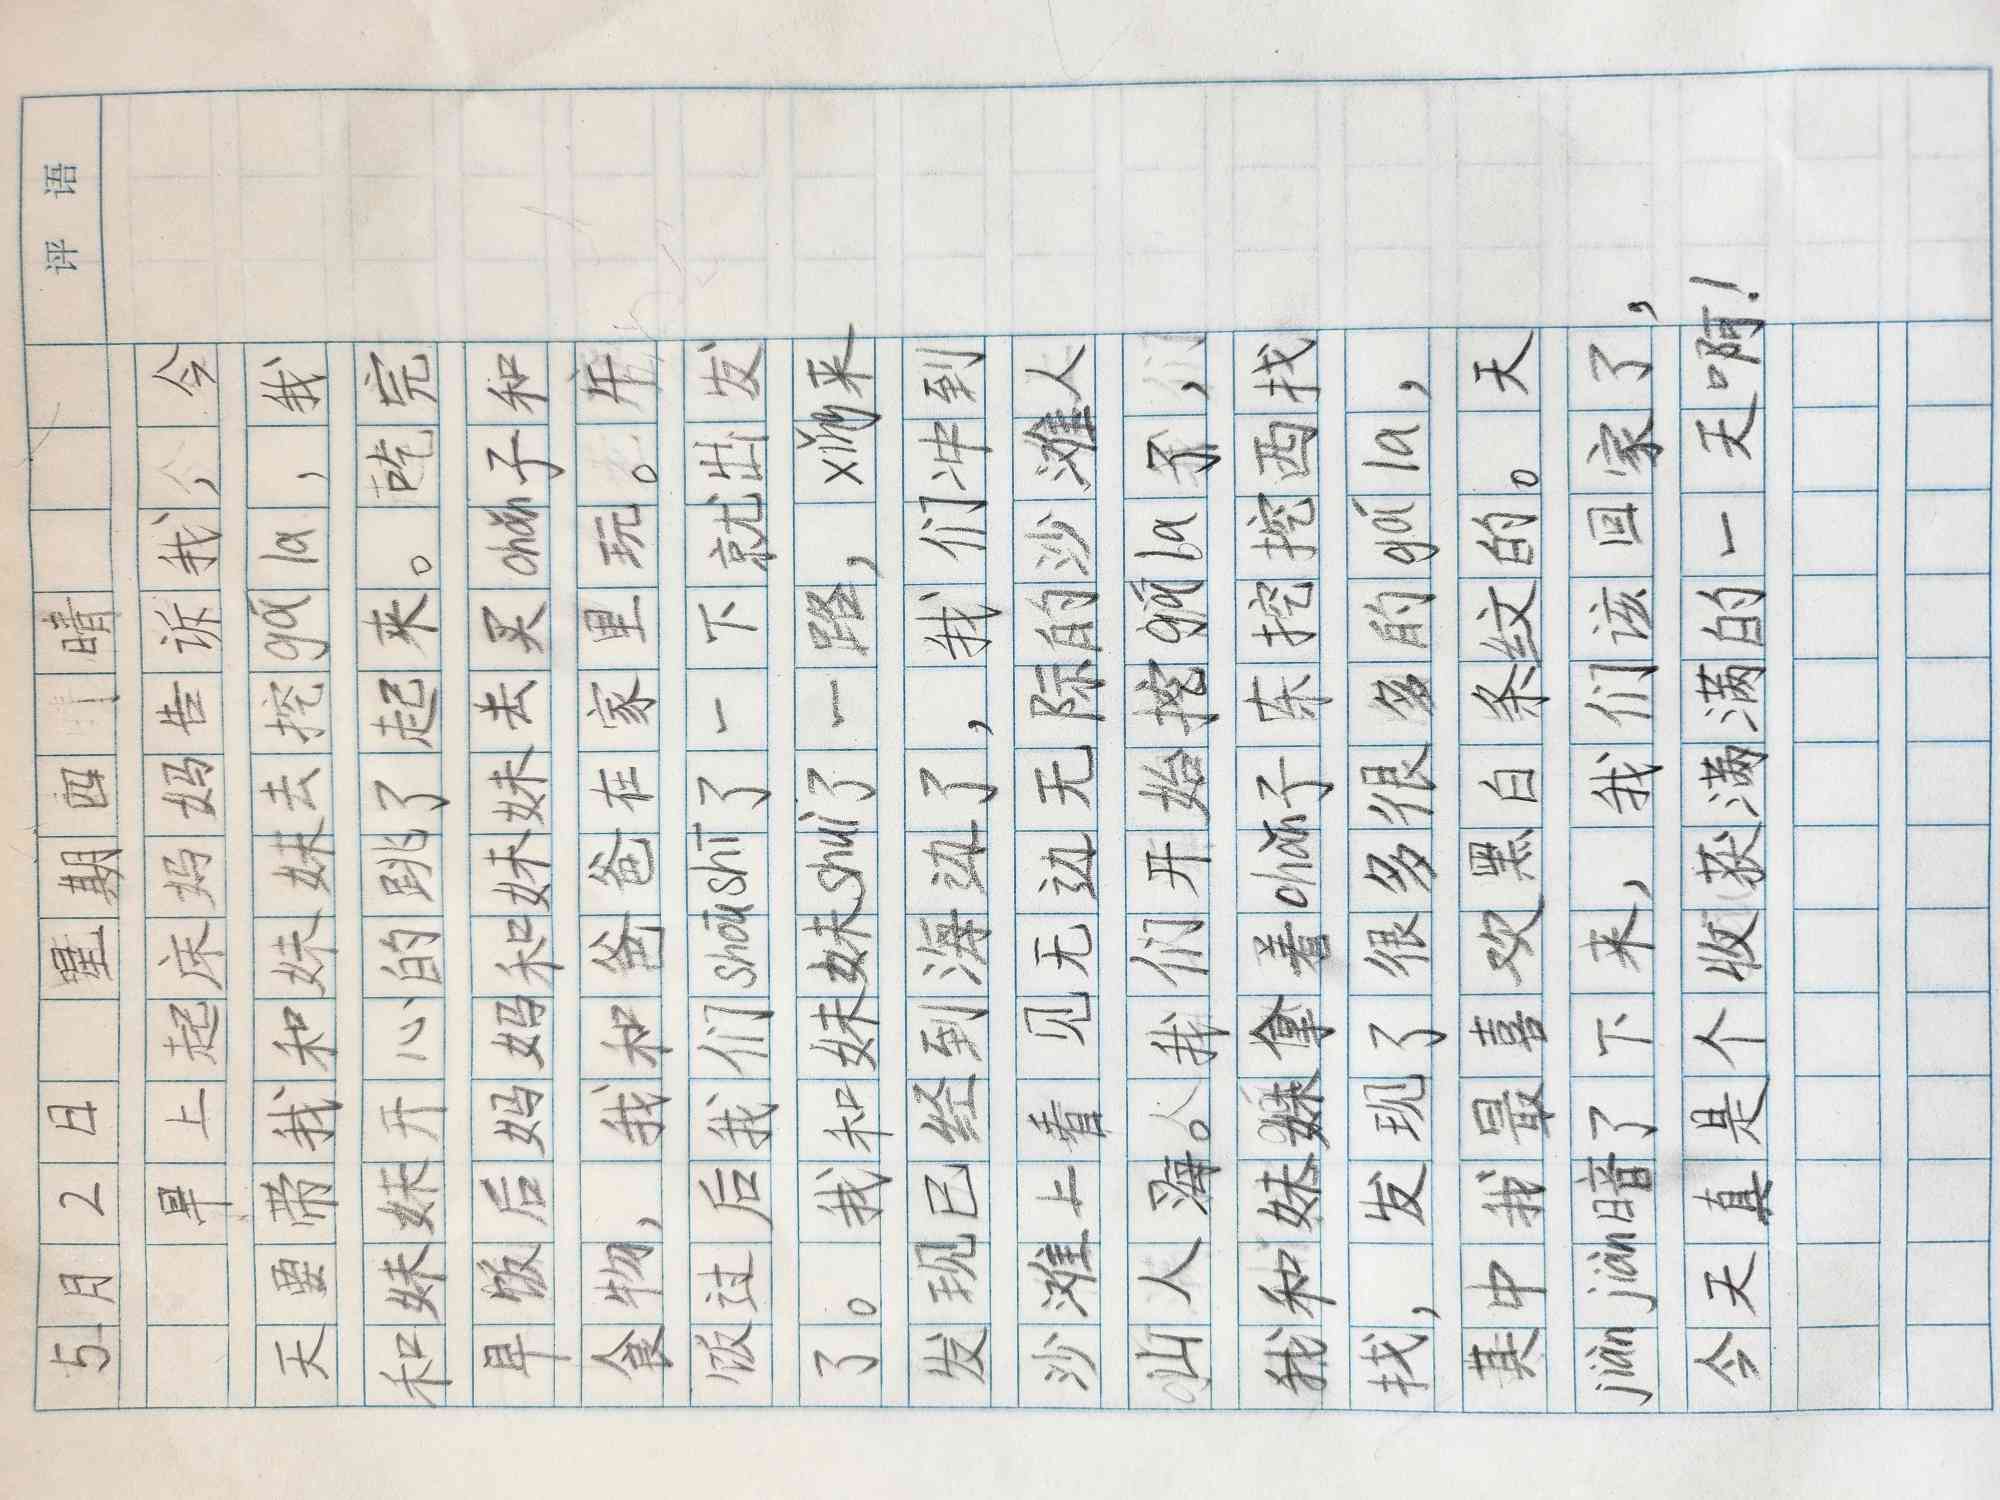 评语
5月2日 星期四 晴
早上起床妈妈告诉我，今
天要带我和妹妹去挖gá la，我
和妹妹开心的跳了起来。吃完
早饭后妈妈和妹妹去买chǎn子和
食物，我和爸爸在家里玩。午
饭过后我们shōu shī了一下就出发
了。我和妹妹shuì了一路，xǐng来
发现已经到海边了，我们冲到
沙滩上看见无边无际的沙滩人
山人海。我们开始挖gá la了，
我和妹妹拿着chǎn子东挖挖西找
找，发现了很多很多的gá la，
其中我最喜欢黑白条纹的。天
jiàn jiàn暗了下来，我们该回家了，
今天真是个收获满满的一天啊！